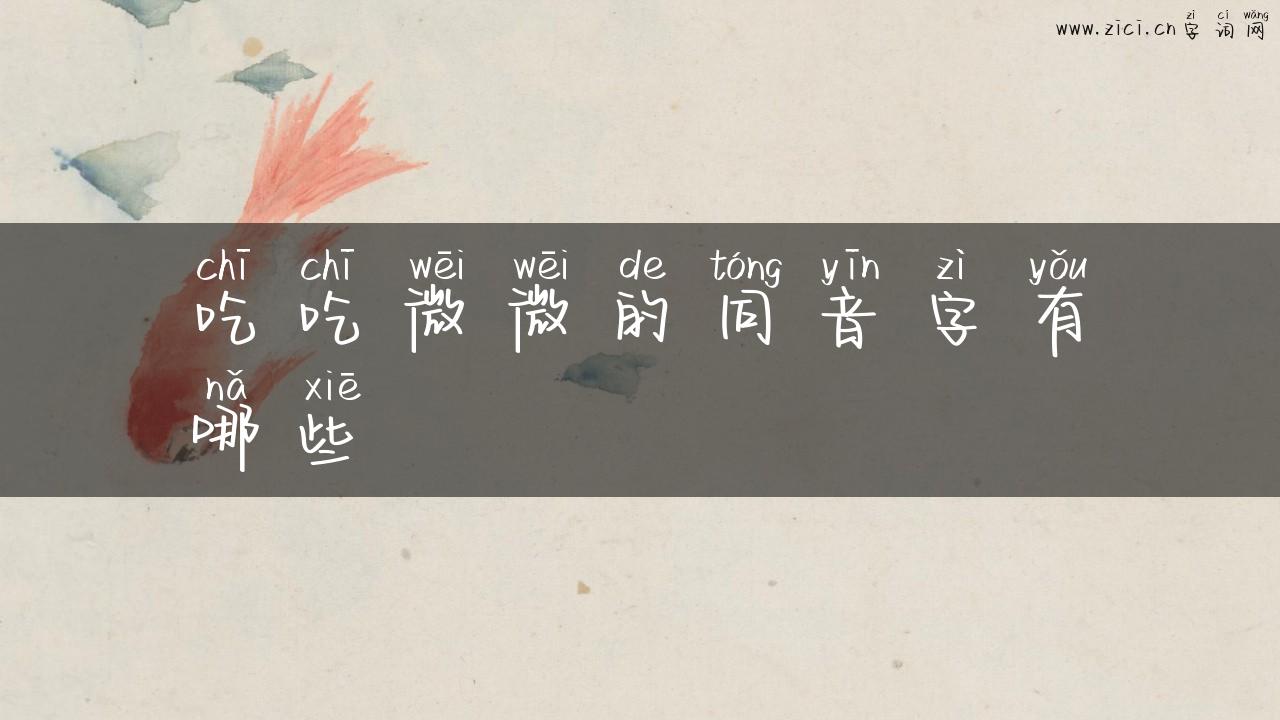 zì cí wǎng
www.zici.cn 字词网
chī chī wēi wēi de tóng yīn zì yǒu
吃吃微微的同音字有
nǎ xiē
哪些